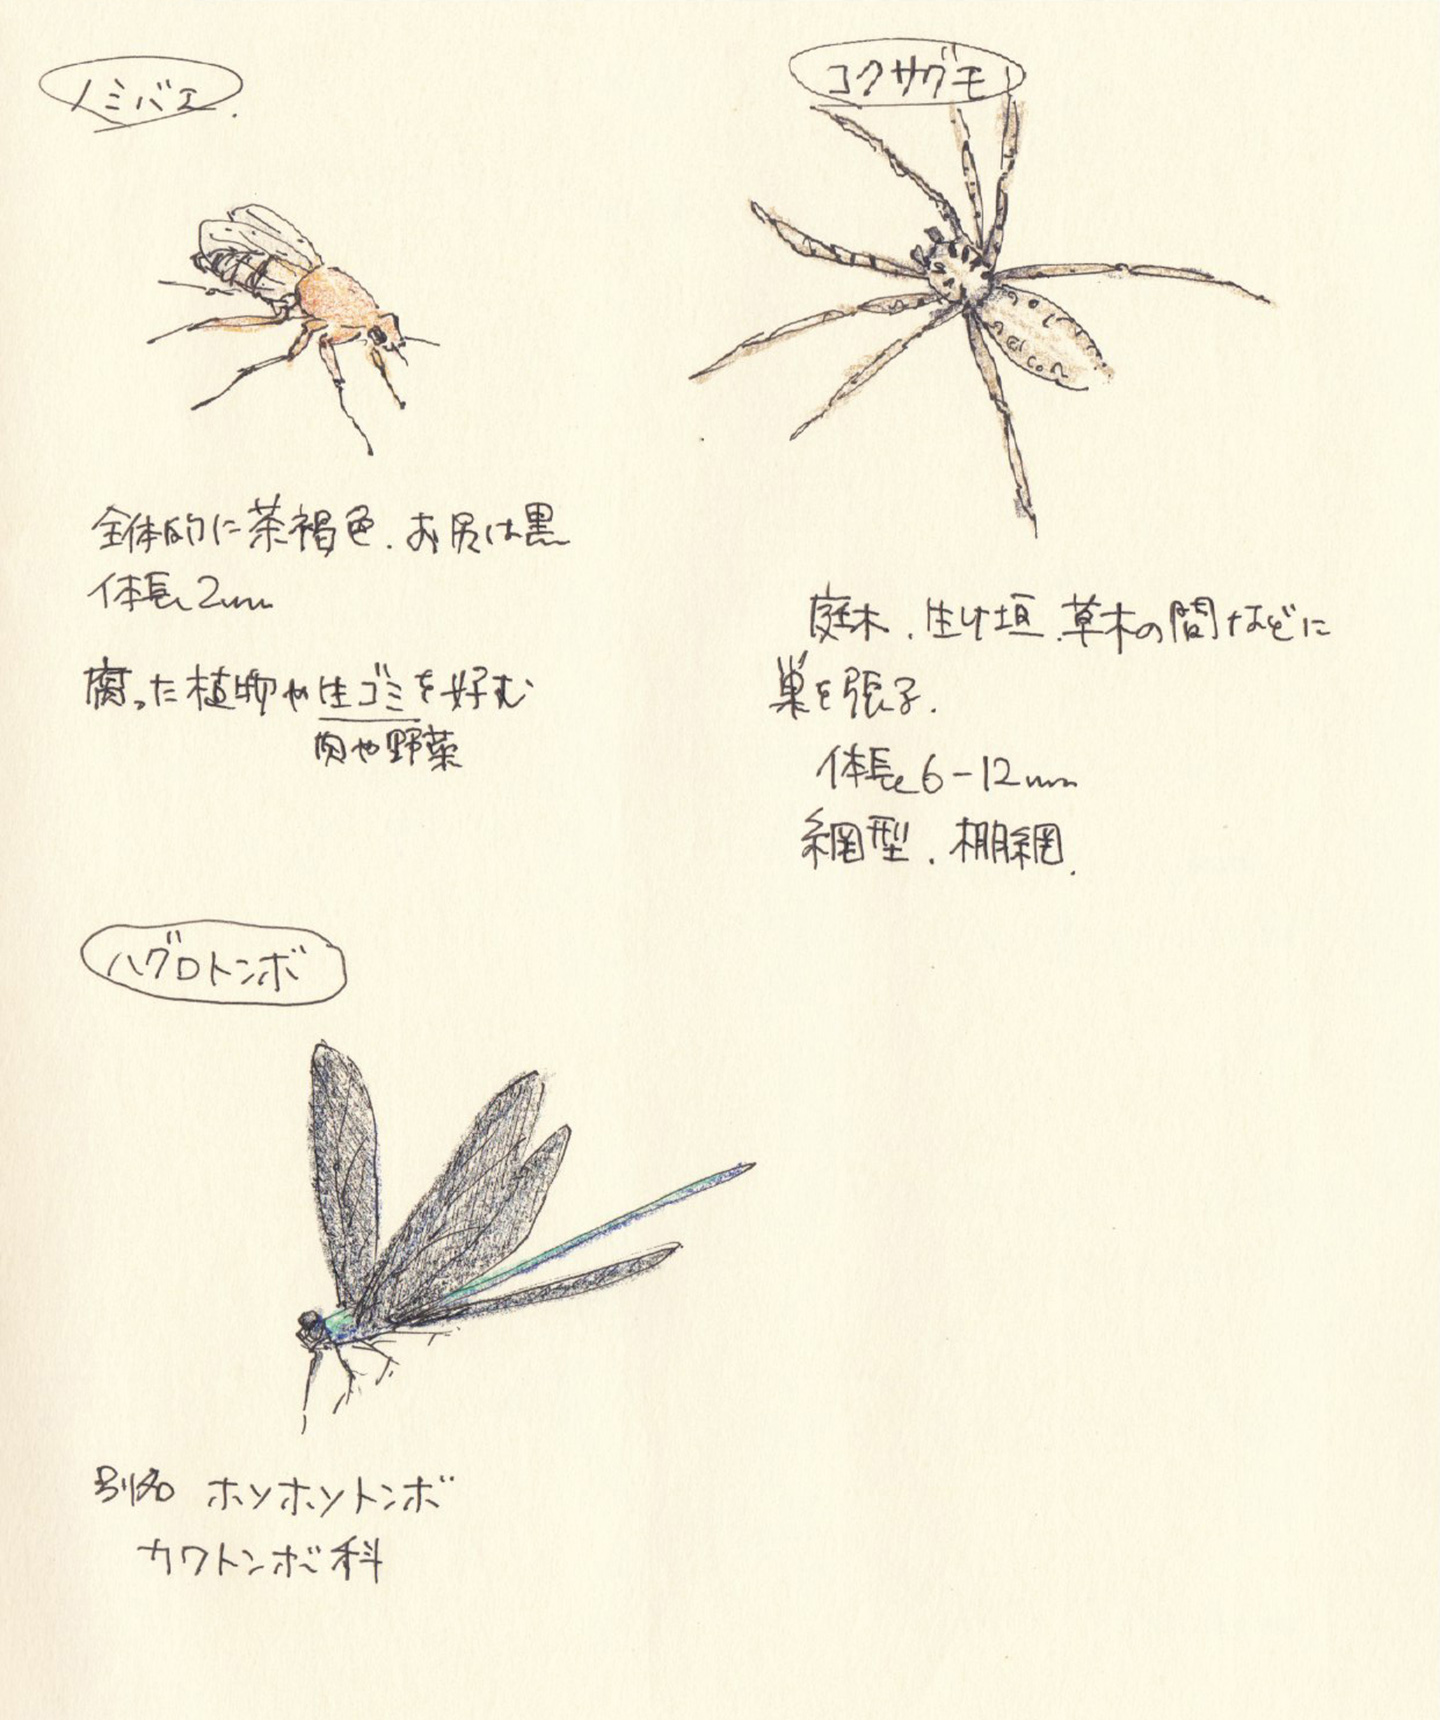 ノミバエ.
全体的に茶褐色.お尻は黒
体長2mm
腐った植物や生ゴミを好む
肉や野菜
コクサグモ
庭木.生け垣.草木の間などに
巣を張る.
体長6-12mm
網型.棚網.
ハグロトンボ
別名 ホソホソトンボ
カワトンボ科